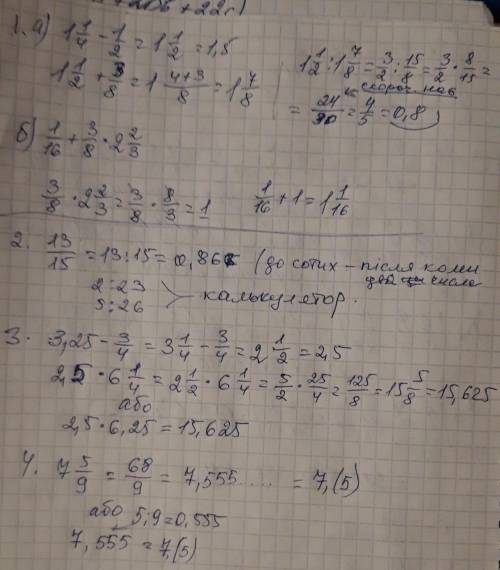 1. а) 1 1/4 - 1/2 = 1 1/2 = 1,5
1 1/2 + 3/8 = 1 4+3/8 = 1 7/8
1 1/2 : 1 7/8 = 3/2 : 15/8 = 3/2 · 8/15 =
= 24/30 = 4/5 = 0,8
б) 1/16 + 3/8 · 2 2/3
3/8 · 2 2/3 = 3/8 · 8/3 = 1
1/16 + 1 = 1 1/16
2. 13/15 = 13:15 = 0,86 (до сотих - після коми
числа
2:23
5:26
калькулятор.
3. 3,25 - 3/4 = 3 1/4 - 3/4 = 2 1/2 = 2,5
2,5 · 6 1/4 = 2 1/2 · 6 1/4 = 5/2 · 25/4 = 125/8 = 15 5/8 = 15,625
або
2,5 · 6,25 = 15,625
4. 7 5/9 = 68/9 = 7,555..... = 7,(5)
або 5:9 = 0,555
7,555 = 7,(5)